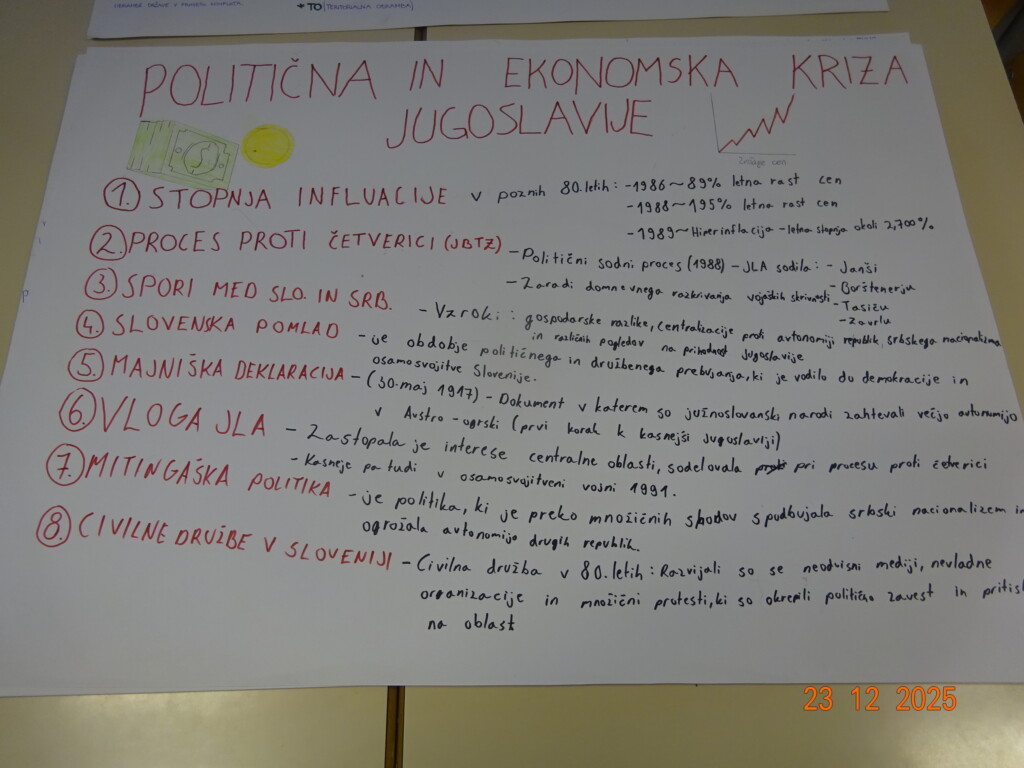 → TO (TERITORIALNA OBRAMBA)
POLITIČNA IN EKONOMSKA KRIZA
JUGOSLAVIJE
$
Zvišanje cen
1. STOPNJA INFLUACIJE v poznih 80.letih: -1986~89% letna rast cen
-1988~195% letna rast cen
-1989~Hiperinflacija -letna stopnja okoli 2,700%
2. PROCES PROTI ČETVERICI (JBTZ) -Politični sodni proces (1988) - JLA sodila: - Janši
- Borštenerju
- Tasiču
- Zavrlu
- Zaradi domnevnega razkrivanja vojaških skrivnosti
3. SPORI MED SLO. IN SRB. - Vzroki: gospodarske razlike, centralizacije proti avtonomiji republik, srbskega nacionalizma
in različnih pogledov na prihodnost Jugoslavije
4. SLOVENSKA POMLAD -je obdobje političnega in družbenega prebujanja, ki je vodilo do demokracije in
osamosvojitve Slovenije.
5. MAJNIŠKA DEKLARACIJA - (30.maj 1917) - Dokument v katerem so južnoslovanski narodi zahtevali večjo avtonomijo
v Avstro-ogrski (prvi korak k kasnejši Jugoslaviji)
6. VLOGA JLA - Zastopala je interese centralne oblasti, sodelovala pri procesu proti četverici
- Kasneje pa tudi v osamosvojitveni vojni 1991.
7. MITINGAŠKA POLITIKA -je politika, ki je preko množičnih shodov spodbujala srbski nacionalizem in
ogrožala avtonomijo drugih republik.
8. CIVILNE DRUŽBE V SLOVENIJI - Civilna družba v 80.letih: Razvijali so se neodvisni mediji, nevladne
organizacije in množični protesti, ki so okrepili politično zavest in pritisk
na oblast
23 12 2025